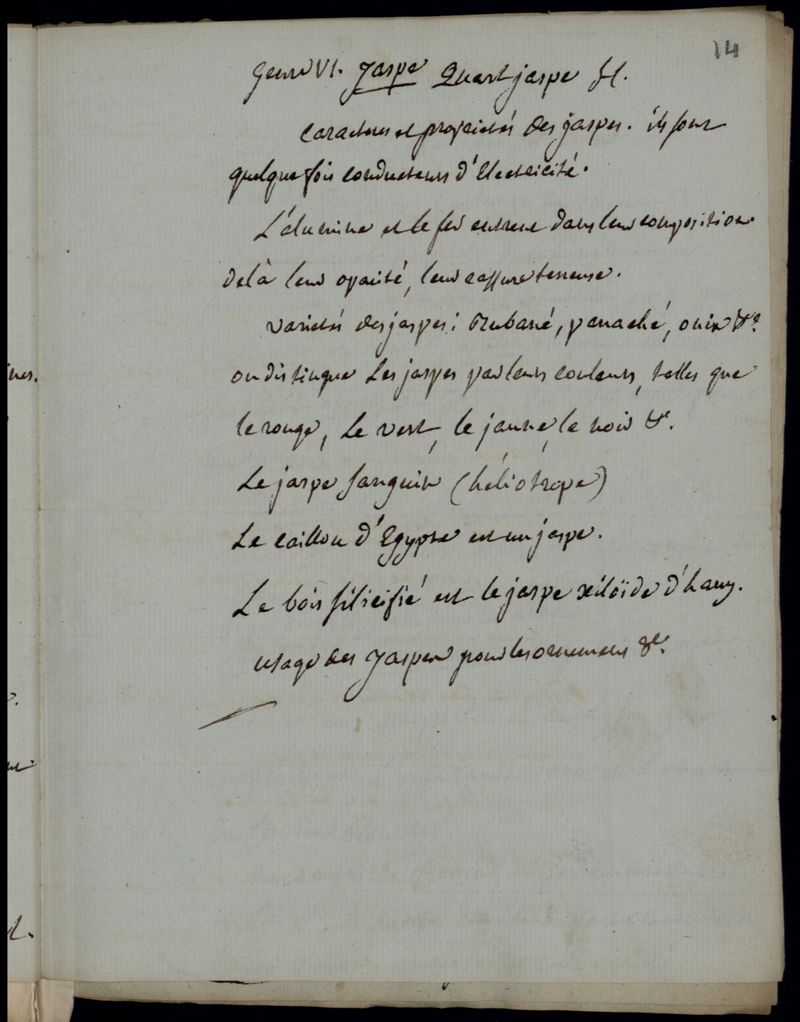 14
Genre VI. Jaspe Quartz jaspe H.
caracteres et proprietés des jaspes. ils sont
quelque fois conducteurs d'Electricité.
L'alumine et le fer entrent dans leur composition
delà leur opacité, leur cassure terreuse.
varietés des jaspes: Rubané, panaché, onix &c.
on distingue Les jaspes par leurs couleurs, telles que
le rouge, Le vert, le jaune, le noir &c.
Le jaspe sanguin (héliotrope)
Le caillou d'Egypte est un jaspe.
Le bois silicifié est le jaspe xiloïde d'hauy.
usage des Jaspes pour les ornemens &c.